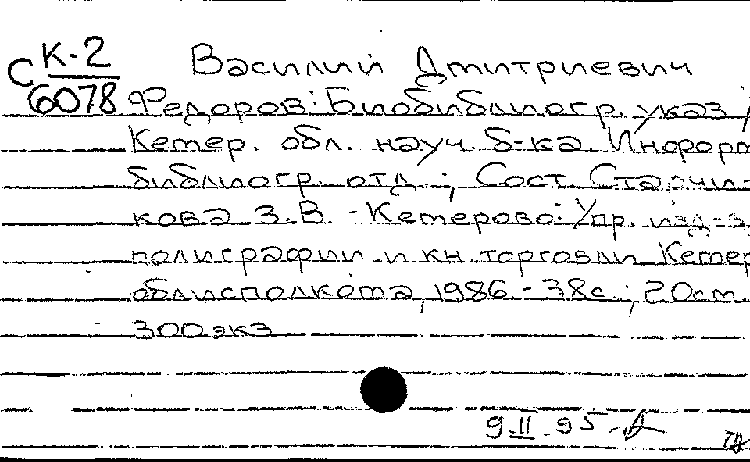 С К-2
6078
Василий Дмитриевич
Федоров: Биобиблиогр. указ /
Кемер. обл. науч. б-ка. Информ.
библиогр. отд.; Сост. Старчи-
кова З.В. - Кемерово: Упр. изд-в,
полиграфии и кн. торговли Кемер.
облисполкома, 1986. - 38с.; 20см.
300экз
9.II.95